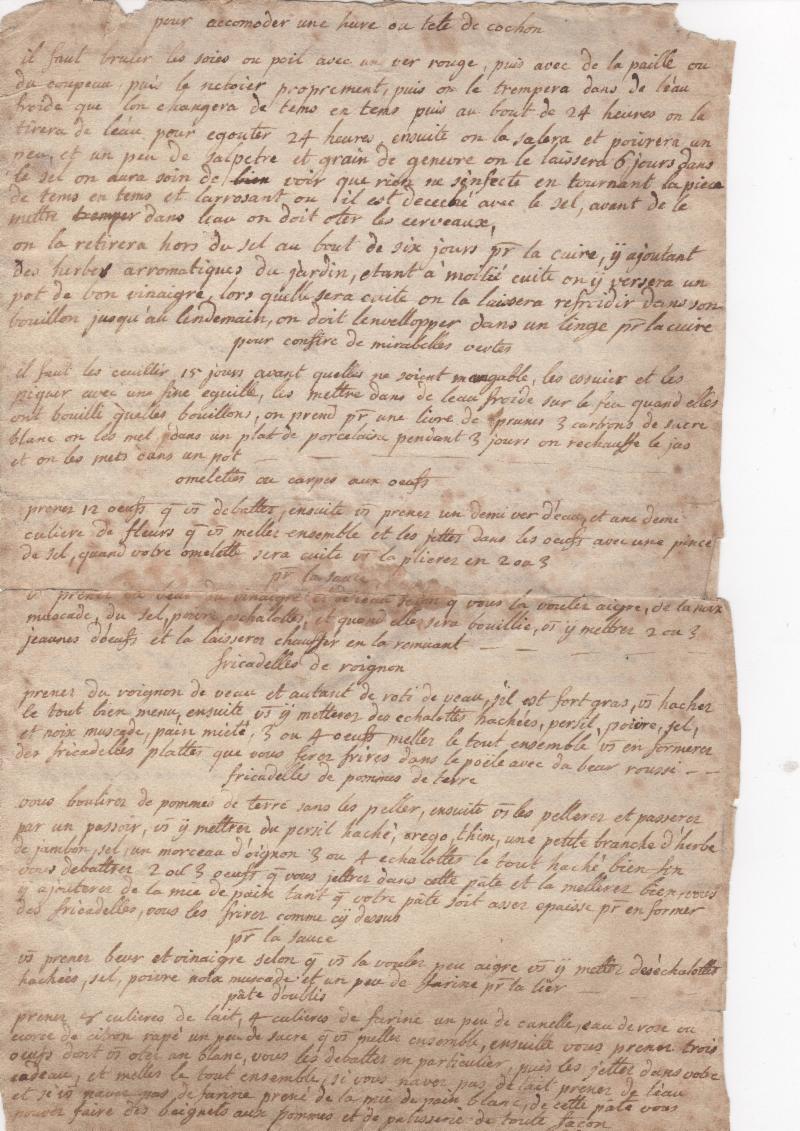 pour accomoder une hure ou tete de cochon
il faut bruler les soies ou poil avec un ver rouge, puis avec de la paille ou
du coupeau, puis le netoier proprement, puis on le trempera dans de l'eau
froide que lon changera de tems en tems puis au bout de 24 heures on la
tirera de l'eau pour egouter 24 heures, ensuite on la salera et poivrera un
peu, et un peu de salpetre et grain de genevre on le laissera 6 jours dans
le sel on aura soin de bien voir que rien ne s'infecte en tournant la piece
de tems en tems et larrosant ou il est deceché avec le sel, avant de le
mettre tremper dans leau on doit oter les cerveaux,
on la retirera hors du sel au bout de six jours pr la cuire, ÿ ajoutant
des herbes arromatiques du jardin, etant a moitié cuite on ÿ versera un
pot de bon vinaigre, lors quelle sera cuite on la laissera refroidir dans son
bouillon jusqu'au lindemain, on doit lenvellopper dans un linge pr la cuire
pour confire de mirabelles vertes
il faut les ceuiller 15 jours avant quelles ne soient mangable, les essuier et les
piquer avec une fine eguille, les mettre dans de leau froide sur le feu quand elles
ont bouilli quelles bouillons, on prend pr une livre de prunes 3 carbrons de sucre
blanc on les met dans un plat de porcelaine pendant 3 jours on rechauffe le jus
et on les mets dans un pot
omelettes ou carpes aux oeufs
prenez 12 oeufs q vs debattez, ensuite vs prenez un demi ver d'eau, et une demi
culiere de fleurs q vs mellez ensemble et les jettez dans les oeufs avec une pincé
de sel, quand votre omelette sera cuite vs la plierez en 2 ou 3
pr la sauce
vs prenez du beur du vinaigre et de l'eau selon q vous la voulez aigre, de la noix
muscade, du sel, poivre, echalottes, et quand elle sera bouillie, vs ÿ mettrez 2 ou 3
jeaunes d'oeufs et la laisserez chauffer en la remuant
fricadelles de roignon
prenez du roignon de veau et autant de roti de veau, s'il est fort gras, vs hachez
le tout bien menu, ensuite vs ÿ metterez des echalottes hachées, persil, poivre, sel,
et noix muscade, pain mielé, 3 ou 4 oeufs mellez le tout ensemble vs en formerez
des fricadelles plattes que vous ferez frires dans le poele avec du beur roussi
fricadelles de pommes de terre
vous boulirez de pommes de terre sans les peller, ensuite vs les pellerez et passerez
par un passoir, vs ÿ mettrez du persil haché, orego, thim, une petite branche d'herbe
de jambon, sel, un morceau d'oignon 3 ou 4 echalottes le tout haché bien fin
vous debattrez 2 ou 3 oeufs q vous jettrez dans cette pâte et la mellerez bien, vous
ÿ ajouterez de la mie de pain tant q votre pâte soit assez epaisse pr en former
des fricadelles, vous les frirez comme cy dessus
pr la sauce
vs prenez beur et vinaigre selon q vs la voulez peu aigre vs ÿ mettez des échalottes
hachées, sel, poivre noix muscade et un peu de farine pr la lier
pâte d'oublis
prenez 4 culieres de lait, 4 culieres de farine un peu de canelle, eau de rose ou
ecorce de citron rapé un peu de sucre q vs mellez ensemble, ensuite vous prenez trois
oeufs dont vs otez un blanc, vous les debattez en particulier, puis les jettez dans votre
cadeau, et mellez le tout ensemble, si vous navez pas de lait prenez de l'eau
et si vs navez pas de farine prené de la mie du pain blanc, de cette pâte vous
pouvez faire des beignets aux pommes et de patisserie de toute façon